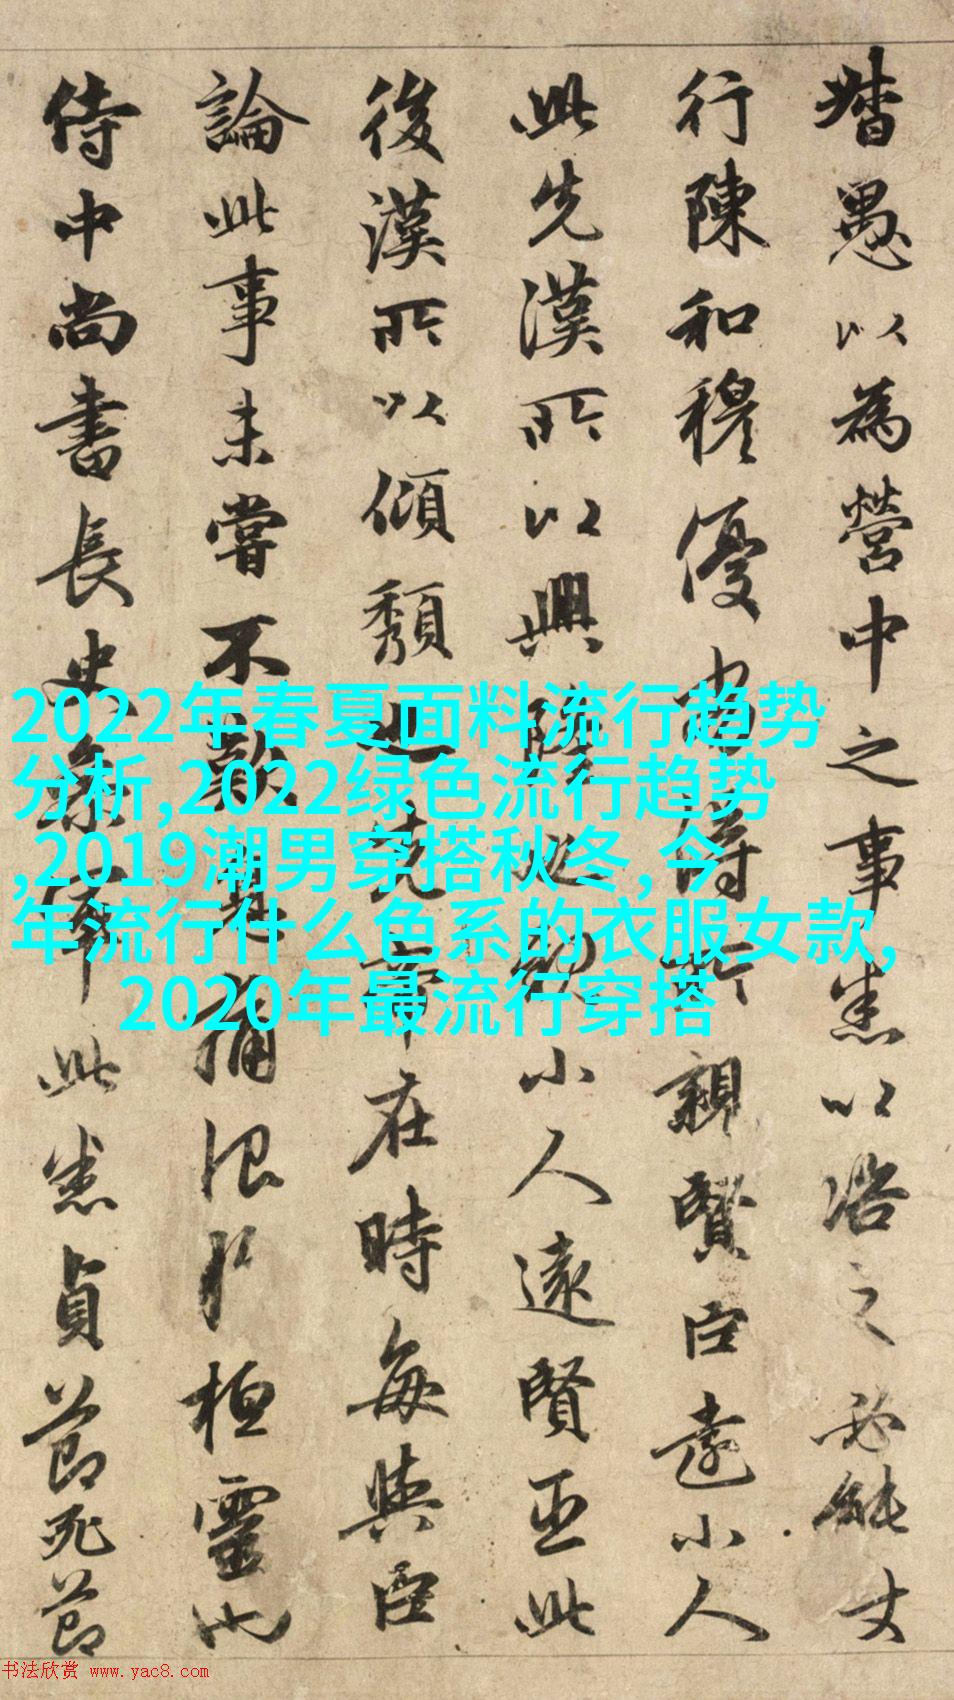 督愚以為營中之事悉以咨之必能使
行陳和穆優劣得所親賢臣遠小人
此先漢所以興隆也親小人遠賢臣此
後漢所以傾頹也先帝在時每與臣
論此事未嘗不歎息痛恨於桓靈也
侍中尚書長史參軍此悉貞節死節
2022年春夏面料流行趋势
分析,2022绿色流行趋势
,2019潮男穿搭秋冬,今
年流行什么色系的衣服女款,
2020年最流行穿搭
书法欣赏 www.yac8.com